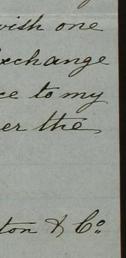 wish one
exchange
ce to my
er the
ton & Co.